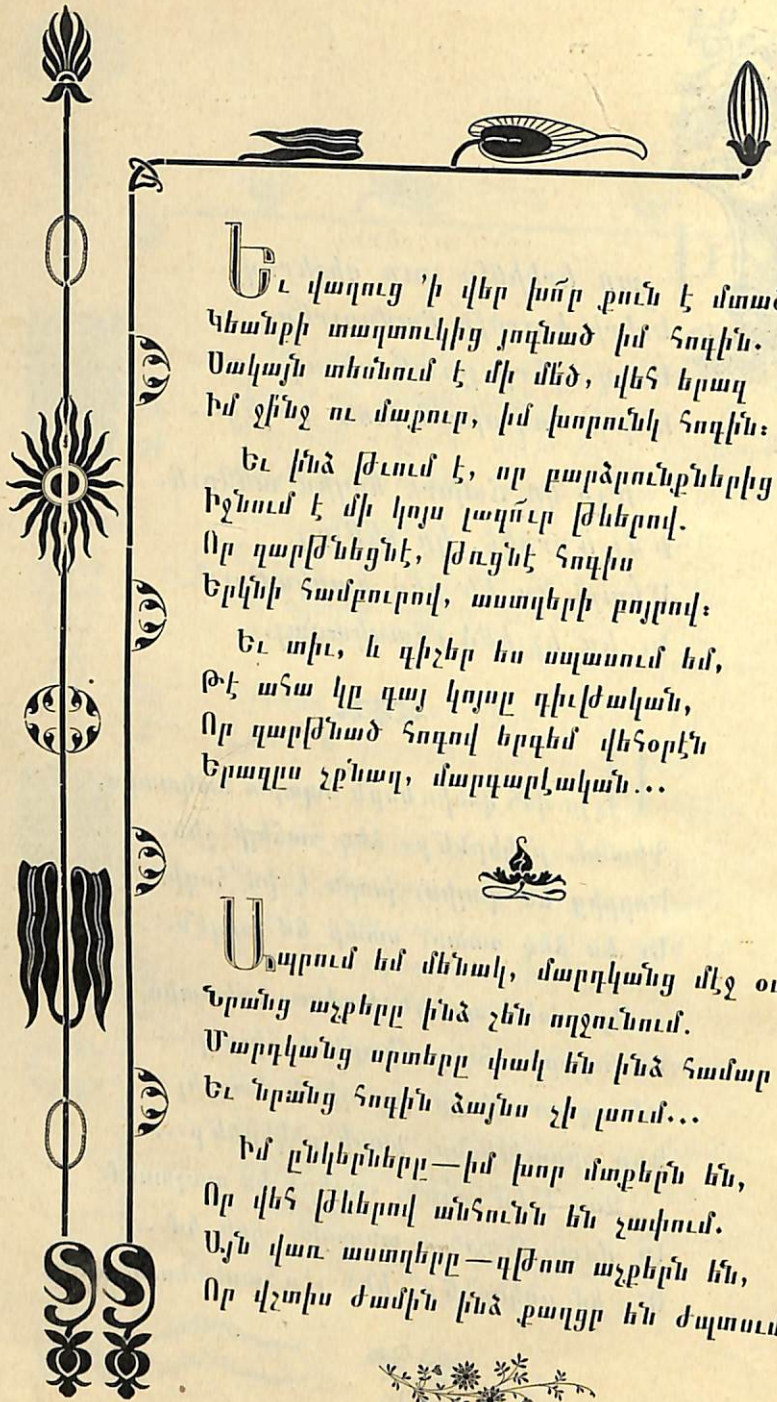 Եւ վաղուց ՚ի վեր խո՜ր քուն է մտած
Կեանքի տաղտուկից յոգնած իմ հոգին.
Սակայն տեսնում է մի մե՜ծ, վեհ երազ
Իմ ջի՜նջ ու մաքուր, իմ խորունկ հոգին։
Եւ ինձ թւում է, որ բարձրունքներից
Իջնում է մի կոյս լազո՜ւր թևերով.
Որ զարթնեցնէ, թռցնէ հոգիս
Երկնի համբուրով, աստղերի բոյրով։
Եւ տիւ, և գիշեր ես սպասում եմ,
Թէ ահա կը գայ կոյսը դիւթական,
Որ զարթնած հոգով երգեմ վեհօրէն
Երազըս չքնաղ, մարգարէական...
Ապրում եմ մենակ, մարդկանց մէջ
Նրանց աչքերը ինձ չեն ողջունում.
Մարդկանց սրտերը փակ են ինձ համար
Եւ նրանց հոգին ձայնս չի լսում...
Իմ ընկերները—իմ խոր մտքերն են,
Որ վեհ թևերով անհունն են չափում.
Այն վառ աստղերը—գթոտ աչքերն են,
Որ վշտիս ժամին ինձ քաղցր են ժպտում